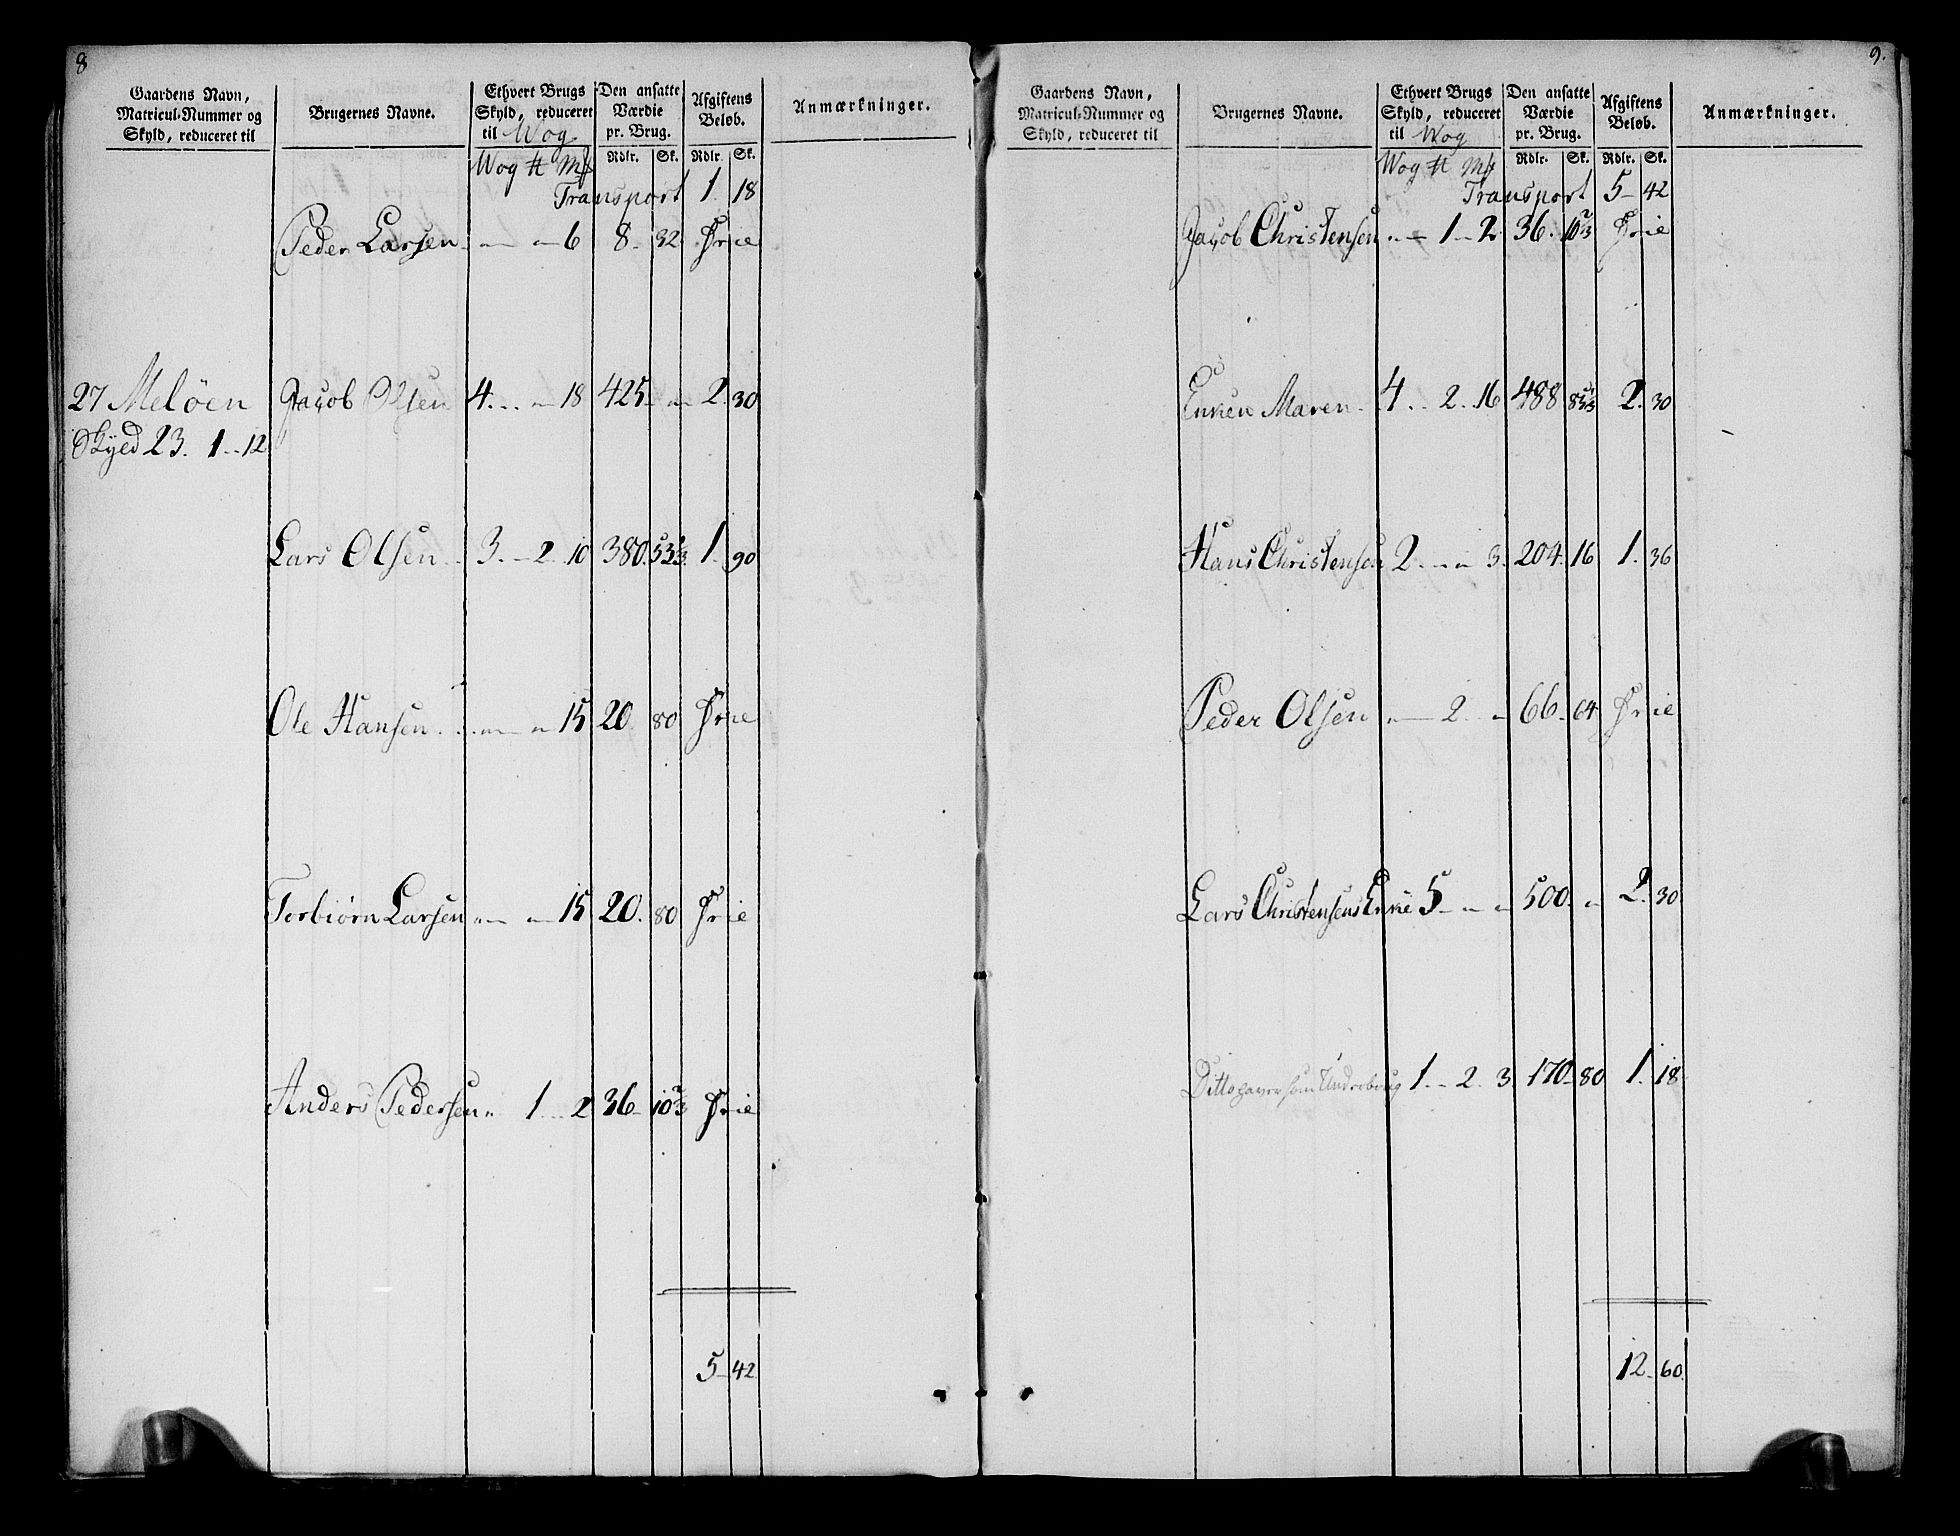 8
Gaardens Navn, Matricul-Nummer og Skyld, reduceret til
Brugernes Navne.
Ethvert Brugs Skyld, reduceret til Wog
Den ansatte Værdie pr. Brug.
Afgiftens Beløb.
Anmærkninger.
Wog ℔ Mk Rdlr. Sk. Rdlr. Sk.
Transport 1. 18
Peder Larsen - - 6 8. 32 Frie
27 Meløen Jacob Olsen 4. - 18 425 - 2. 30
Skyld 23. 1 - 12
Lars Olsen 3. - 2 10 380. 53⅓ 1. 90
Ole Hansen - - 15 20. 80 Frie
Torbiørn Larsen - - 15 20. 80 Frie
Anders Pedersen - 1 - 2 36 - 10⅔ Frie
5 - 42
9.
Gaardens Navn, Matricul-Nummer og Skyld, reduceret til
Brugernes Navne.
Ethvert Brugs Skyld, reduceret til Wog
Den ansatte Værdie pr. Brug.
Afgiftens Beløb.
Anmærkninger.
Wog ℔ Mk Rdlr. Sk. Rdlr. Sk.
Transport 5 - 42
Jacob Christensen - 1 - 2 36. 10⅔ Frie
Enken Maren 4 - 2. 16 488 85⅓ 2. 30
Hans Christensen 2. - - 3. 204. 16 1. 36
Peder Olsen - 2. - 66. 64 Frie
Lars Christensens Enke 5 - - 500. - 2. 30
Ditto haver som Underbrug 1 - 2. 3. 170 - 80 1. 18
12. 60.